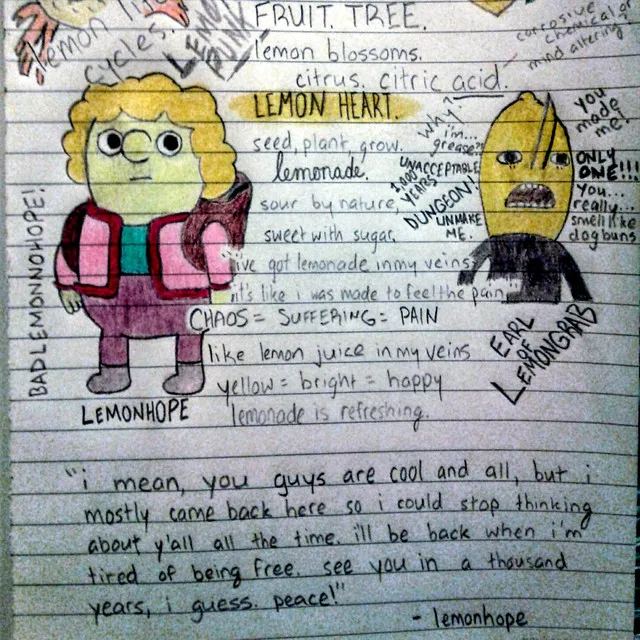 FRUIT. TREE.
lemon
cycles.
LEMON
PUNK
lemon blossoms.
citrus. citric acid.
corrosive
chemical or
mind altering
LEMON HEART.
seed, plant, grow.
lemonade.
sour by nature,
sweet with sugar,
"ive got lemonade in my veins
it's like i was made to feel the pain"
CHAOS = SUFFERING = PAIN
like lemon juice in my veins
yellow = bright = happy
lemonade is refreshing.
BADLEMONNOHOPE!
LEMONHOPE
Why?
i'm...
grease?
UNACCEPTABLE
1,000,000
YEARS
DUNGEON!
UNMAKE
ME.
you
made
me!
ONLY
ONE!!!
You...
really...
smell like
dogbuns
EARL
OF
LEMONGRAB
"i mean, you guys are cool and all, but i
mostly came back here so i could stop thinking
about y'all all the time. ill be back when i'm
tired of being free. see you in a thousand
years, i guess. peace!"
- lemonhope